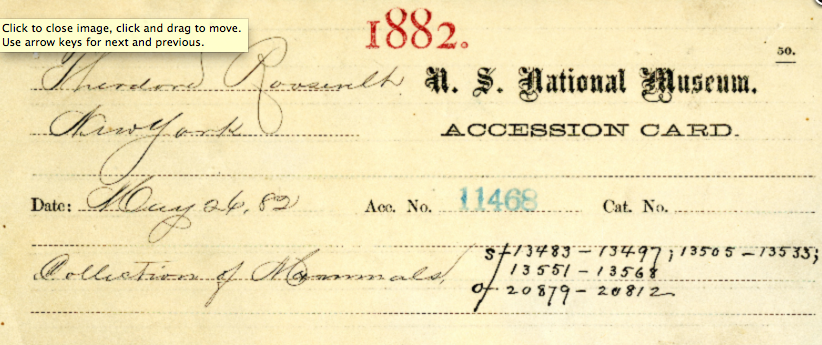 Click to close image, click and drag to move.
Use arrow keys for next and previous.
1882.
50.
Theodore Roosevelt
U. S. National Museum.
New York
ACCESSION CARD.
Date: May 26, 82 Acc. No. 11468 Cat. No.
Collection of Mammals,
S 13483 - 13497; 13505 - 13533;
13551 - 13568
O 20879 - 20812